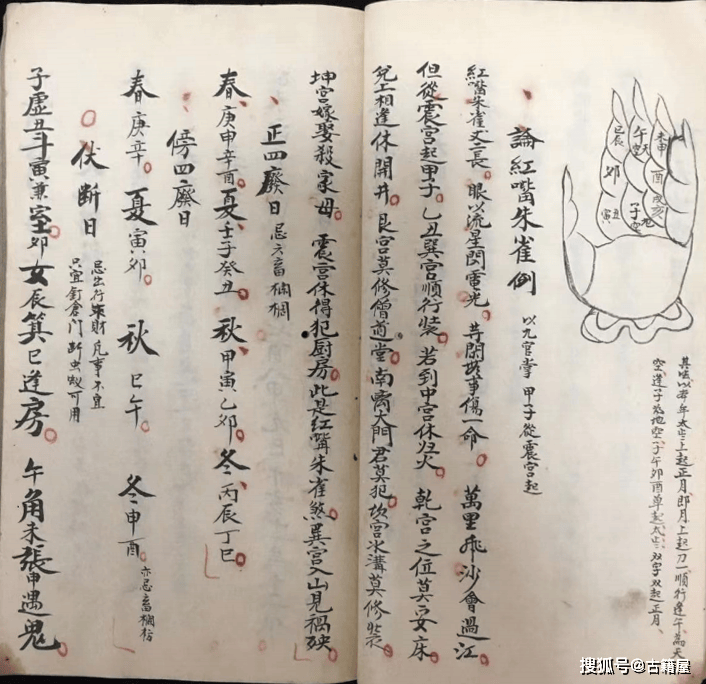 未申
午
天空
巳辰
酉
戌亥
卯
寅
丑
子
地空
其法以年太上起正月即月上起初一順行逢午為天
空逢子為地空子午卯酉單起双字双起正月
論紅嘴朱雀例 以九宮掌 甲子從震宮起
紅嘴朱雀丈二長 眼以流星閃電光 等閑事傷一命 萬里飛沙會過江
但從震宮起甲子 乙丑巽宮順行裝 若到中宮休归火 乾宮之位莫安床
兌上相逢休開井 艮宮莫修僧道堂 南离大門君莫犯 坎宮水溝莫修裝
坤宮嫁娶殺家母 震宮休得犯厨房 此是紅嘴朱雀煞 巽宮入山見禍殃
正四廢日 忌六畜欄棚
春庚申辛酉 夏壬子癸丑 秋甲寅乙卯 冬丙辰丁巳
傍四廢日
春庚辛 夏寅卯 秋巳午 冬申酉 亦忌畜欄
伏断日 忌出行求財凡事不宜
只宜釘倉門断虫蚁可用
子虚丑斗寅兼室 卯女辰箕巳逢房 午角未張申遇鬼
搜狐号@古籍屋